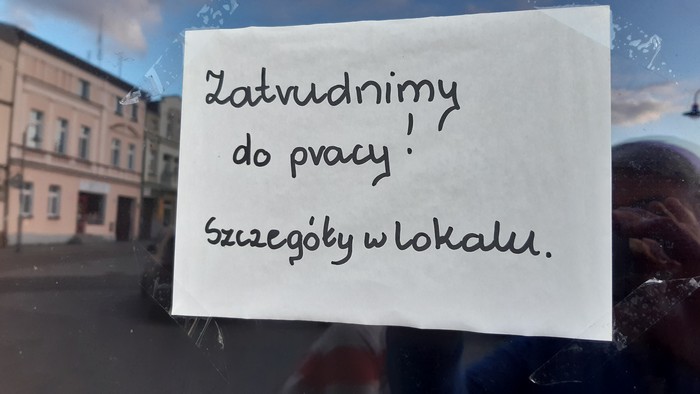 Zatrudnimy
do pracy!
Szczegóły w lokalu.